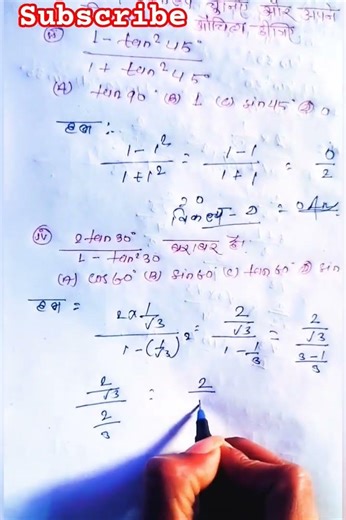 Subscribe
और अपने
औचित्य दीजिए
(ii) (1 - tan²45°)/(1 + tan²45°)
(A) tan90° (B) 1 (C) sin45° (D) 0
हल :-
(1-1²)/(1+1²) = (1-1)/(1+1) = 0/2
= 0 Ans
विकल्प - D
(iv) (2tan30°)/(1-tan²30) बराबर है।
(A) cos60° (B) sin60° (C) tan60° (D) sin
हल =
(2×1/√3)/(1-(1/√3)²) = (2/√3)/(1-1/3) = (2/√3)/((3-1)/3)
(2/√3)/(2/3) = 2/